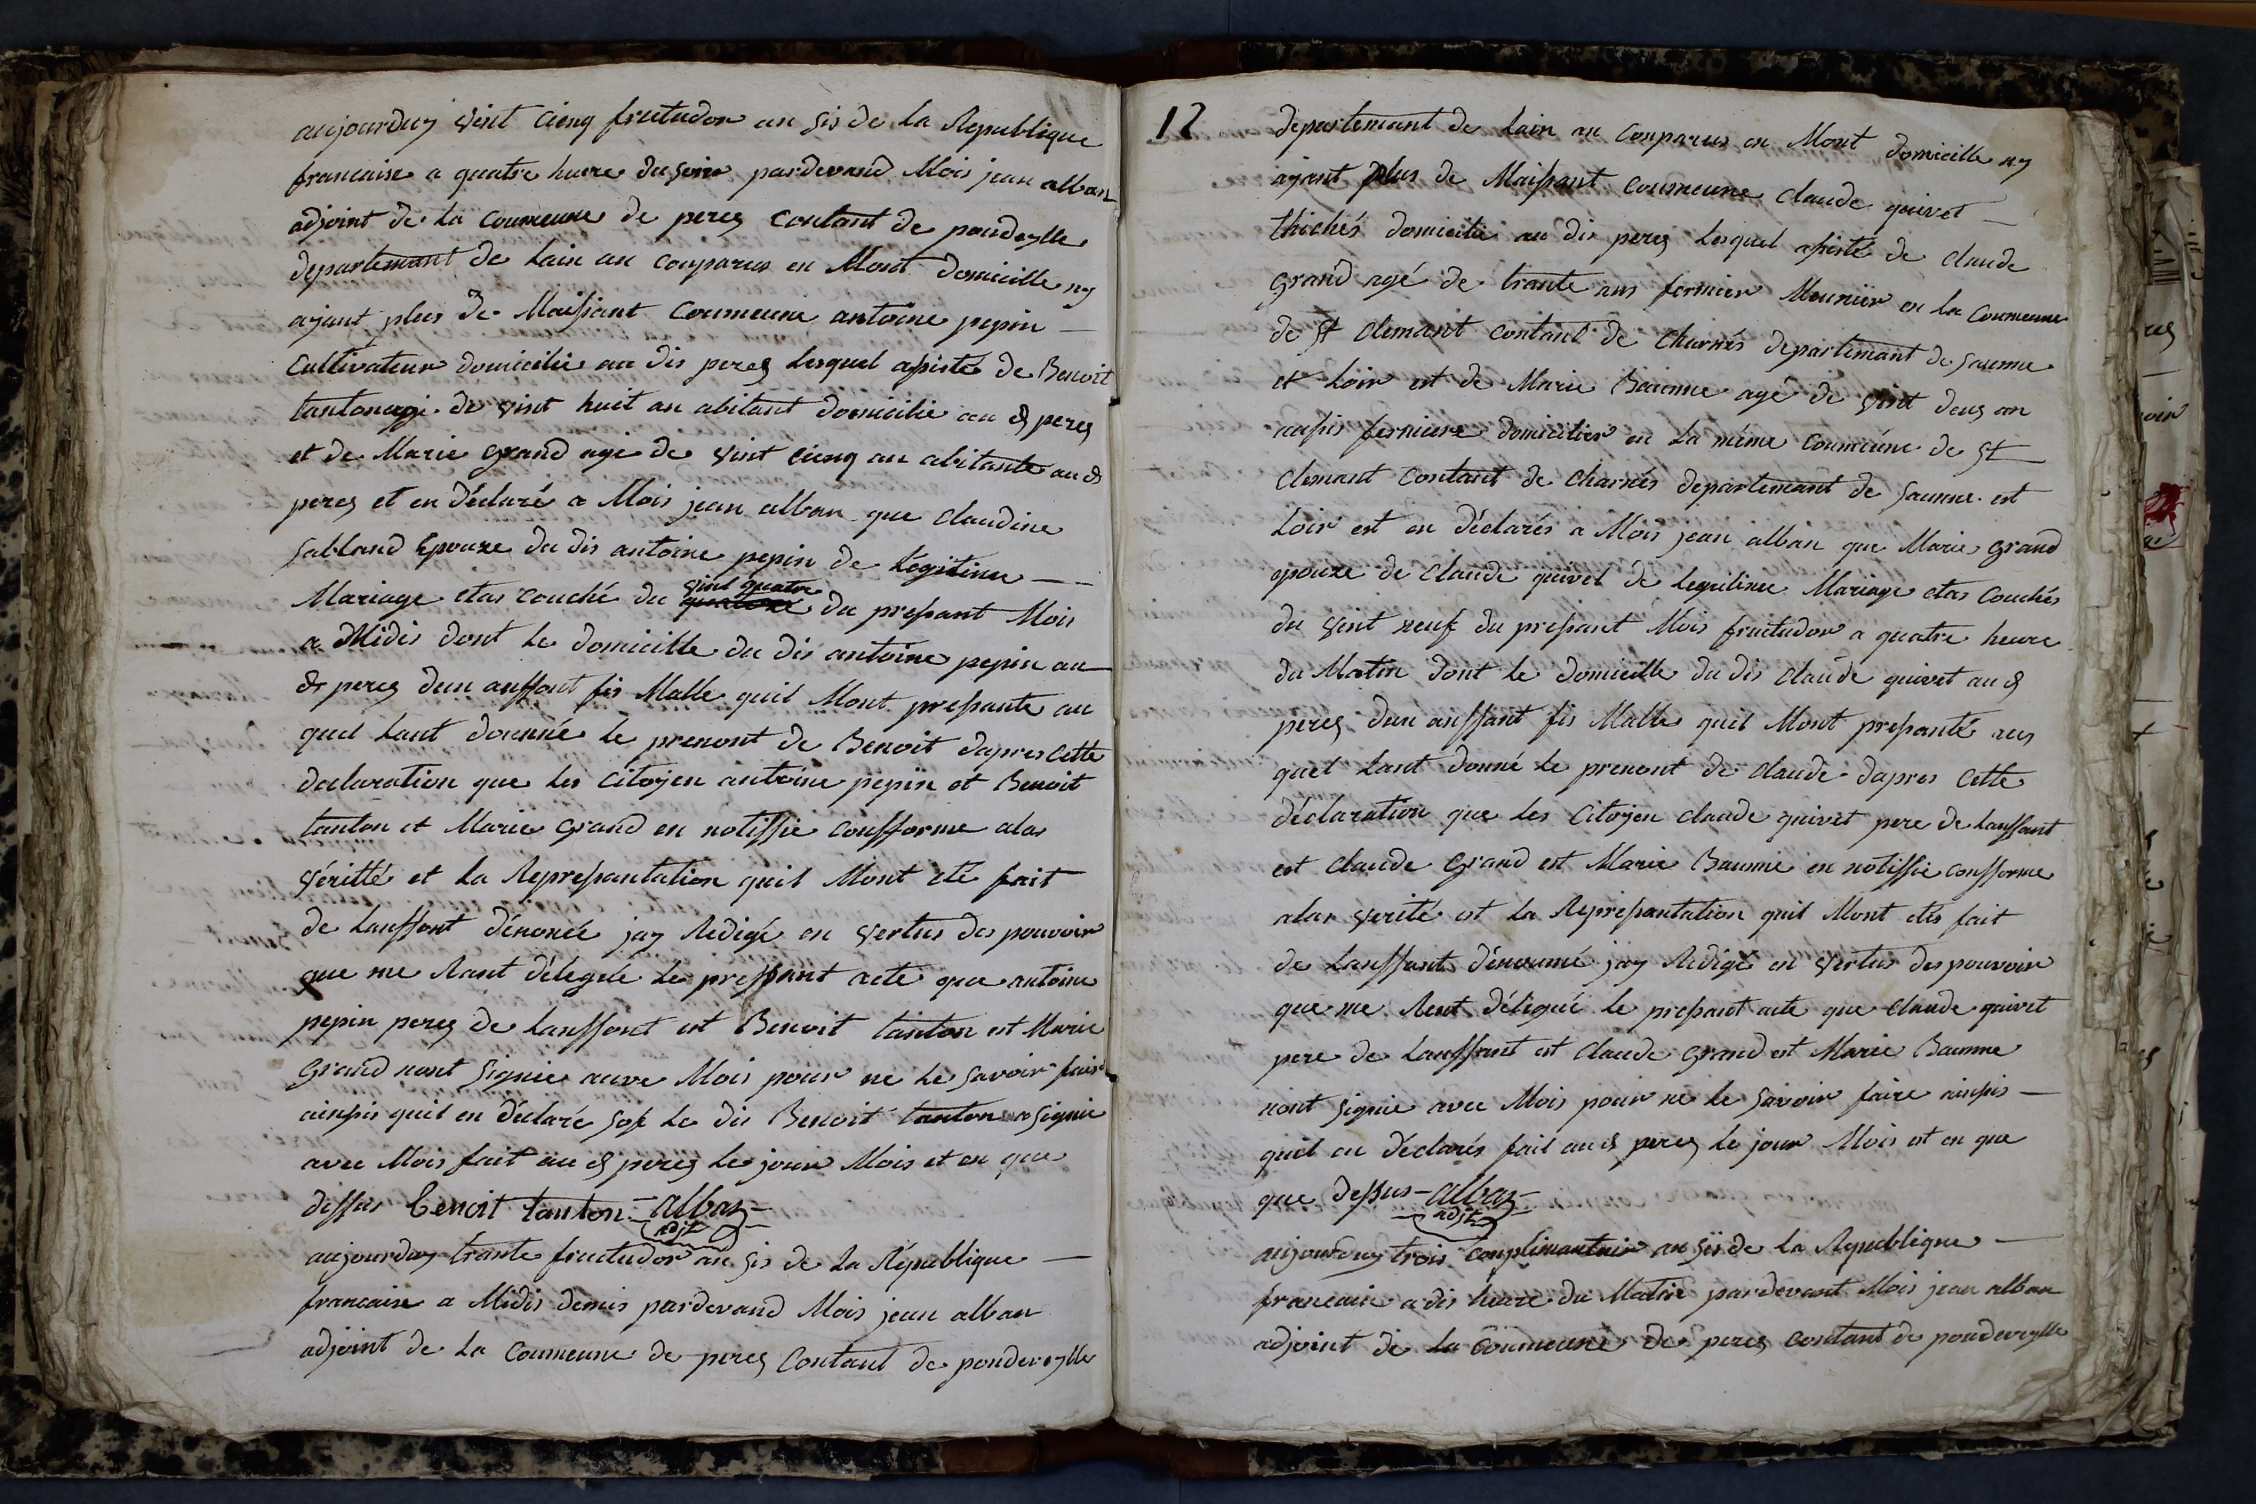 aujourduy vint cienq frutudor an sis de la Republique
francaise a quatre huere du soire pardevand Mois jean alban
adjoint de la Coumeune de perez Contant de pondeylle
departemant de Lain an Conparus en Mont domicille ny
ajant plus de Maissant Coumeune antoine pepin —
Cultivateur domicilie au dis perez lesquel assisté de Benoit
tanton agé de vint huit an abitant domicilie au d perez
et de Marie Grand agé de vint cienq an abitante au d
perez et en déclaré a Mois jean alban que Claudine
Sabland Epouze du dis antoine pepin de legitime —
Mariage etas couché du vint quatre du pressant Mois
a Midis dont le domicille du dis antoine pepin au
dt perez dun anffant fis Malle quil Mont pressanté au
quel lant donné le prenont de Benoit dapres Cette
declaration que les Citoyen antoine pepin et Benoit
tanton et Marie Grand en notiffié Confforme alas
véritté et la Represantation quil Mont eté fait
de Lanffant dénomée jay Redigé en vertus des pouvoir
que me Sant délégué Le pressant acte que antoine
pepin perez de Lanffant est Benoit tanton est Marie
Grand nont signie avec Mois pour ne le savoir faire
ainsis quil en déclaré Sof Le dis Benoit tanton a signie
avec Mois fait au d perez Le jour Mois et en que
dessus Benoit tanton – alban –
adjt
aujourduy trante fructudor an sis de La République —
francaise a Midis demis pardevand Mois jean alban
adjoint de La Coumeune de perez Contant de pondeveylle
12
departemant de Lain an Conparus en Mont domicille ny
ajant plus de Maissant Coumeune Claude quivet —
thichés domicilié au dis perez Lesquel assisté de Claude
Grand agé de trante ans fermier Meunier en la Coumeune
de St Clemant Contant de Charnés departemant de Saunne
et Loir est de Marie Baumne agé de vint deuz an
aussis fermiere domicilier en La même Coumeune de St
Clemant Contant de Charnés departemant de Saunne est
Loir est en déclarés a Mois jean alban que Marie Grand
epouze de Claude quivet de Legitime Mariage etas Couchés
du vint neuf du pressant Mois fructudor a quatre heure
du Matin dont le domicille du dis Claude quivet au d
perez dun anffant fis Malle quil Mont pressanté aus
quel Lant donné Le prenont de Claude dapres Cette
déclaration que Les Citoyen Claude quivet pere de Lanffant
est Claude Grand est Marie Baumne en notiffié Confforme
alas verité est La Represantation quil Mont etés fait
de Lanffant dénoumé jay Redigé en vertus des pouvoir
que me Sent délégué Le pressant acte que Claude quivet
pere de Lanffant est Claude Grand est Marie Baumne
nont signie avec Mois pour ne Le savoir faire ainsis —
quil en déclarés fait au d perez Le jour Mois est en que
que dessus – alban –
adjt
aujourduy trois Conplimantair an sis de La Republique —
francaise a dis heure du Matin pardevant Mois jean alban
adjoint de La Coumeune de perez Contant de pondeveylle